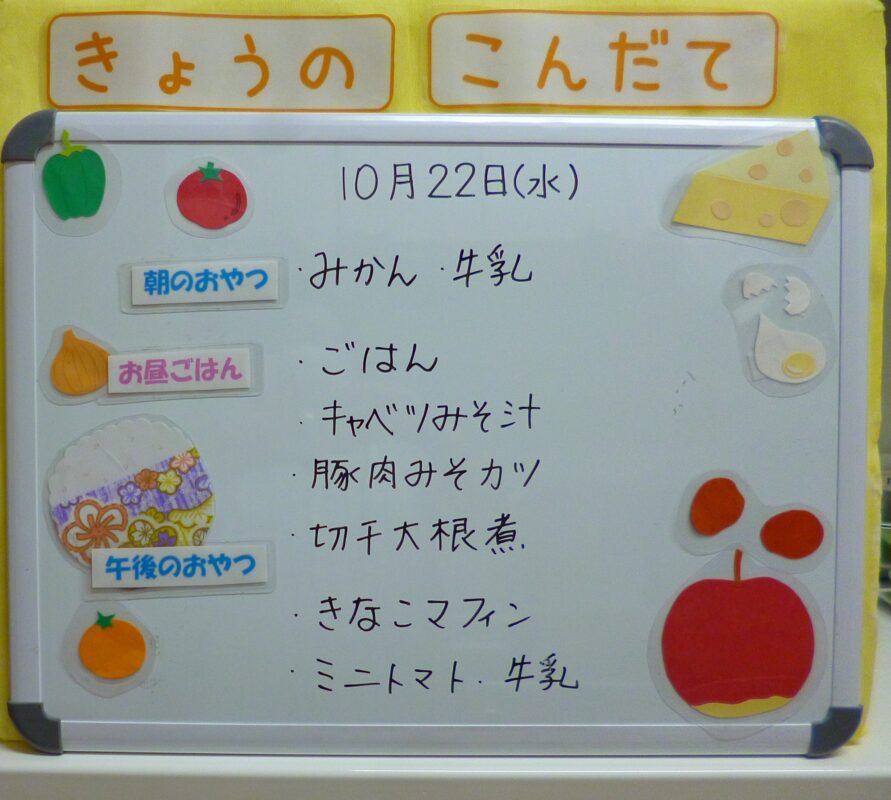 きょうの こんだて
10月22日(水)
朝のおやつ ・みかん ・牛乳
お昼ごはん ・ごはん
・キャベツみそ汁
・豚肉みそカツ
・切干大根煮
午後のおやつ ・きなこマフィン
・ミニトマト・牛乳